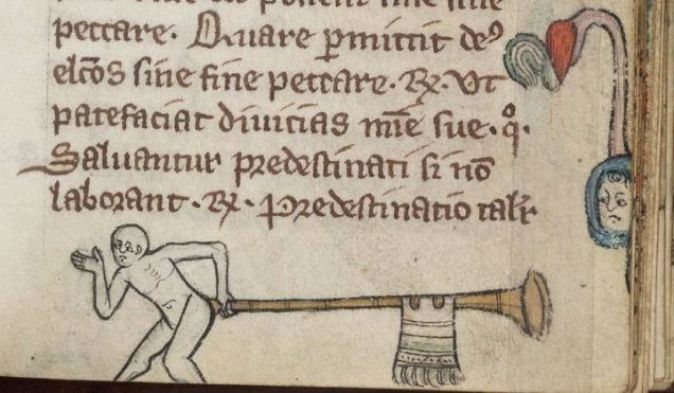 peccare. Quare ꝑmittit deꝰ
elcōs sine fine peccare. ℟. Vt
patefaciat diuicias mīe sue. q̊.
Saluantur predestinati si nō
laborant. ℟. Predestinatio